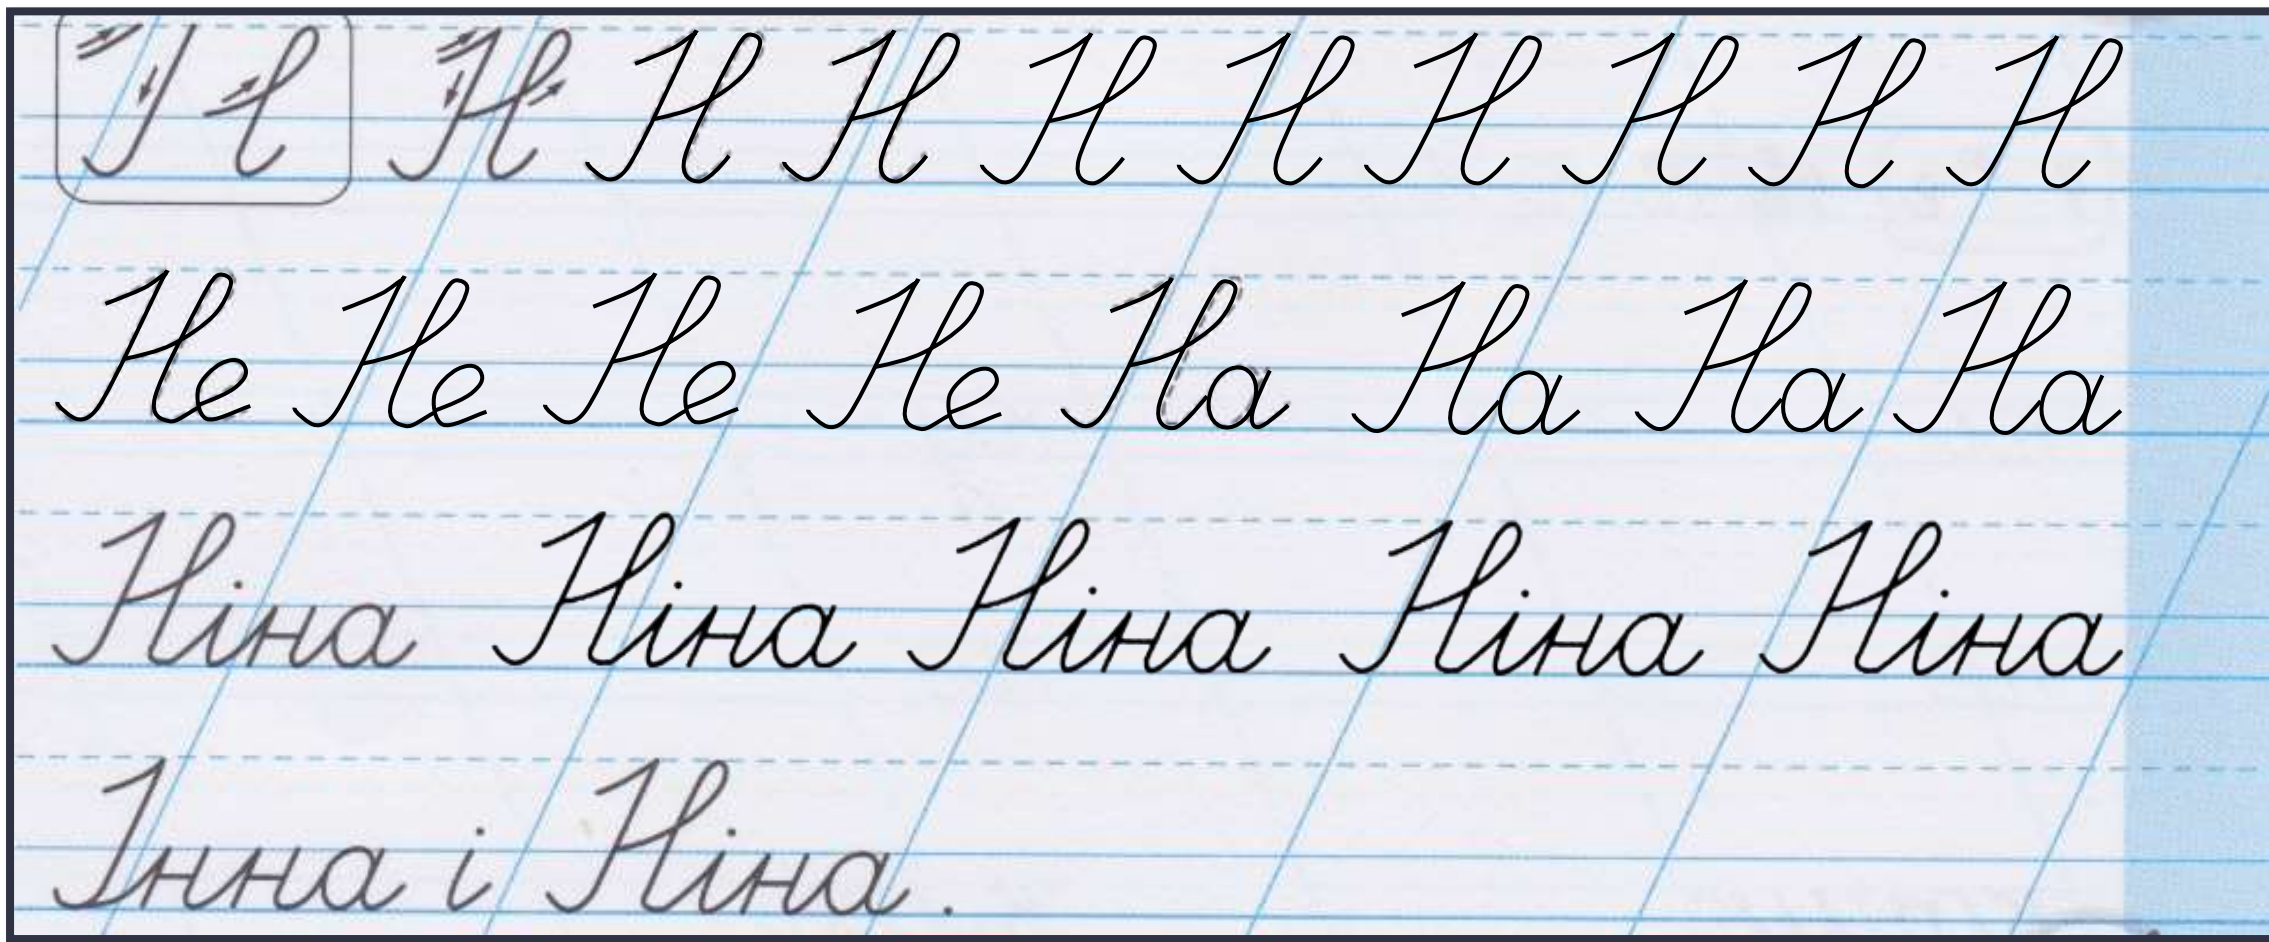 Н Н Н Н Н Н Н Н Н
Не Не Не Не На На На На
Ніна Ніна Ніна Ніна Ніна
Інна і Ніна.